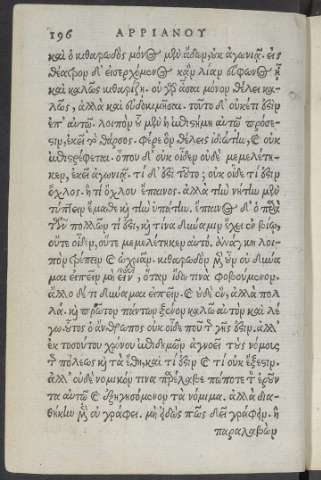 196 ΑΡΡΙΑΝΟΥ
καὶ ὁ κιθαρῳδὸς μόνος μὲν ᾄδων, οὐκ ἀγωνιᾷ. εἰς
θέατρον δ' εἰσερχόμενος κἂν λίαν εὔφωνος ᾖ
καὶ καλῶς κιθαρίζῃ. οὐ γὰρ ᾆσαι μόνον θέλει κα
λῶς, ἀλλὰ καὶ εὐδοκιμῆσαι. τοῦτο δ' οὐκέτι ἐστὶν
ἐπ' αὐτῷ. λοιπὸν οὗ μὲν ἡ ἐπιστήμη αὐτῷ πρόσε-
στιν, ἐκεῖ τὸ θάρσος. φέρε ὃν θέλεις ἰδιώτην, καὶ οὐκ
ἐπιστρέφεται. ὅπου δ' οὐκ οἶδεν οὐδὲ μεμελέτη-
κεν, ἐκεῖ ἀγωνιᾷ. τί δ' ἐστὶ τοῦτο; οὐκ οἶδε τί ἐστιν
ὄχλος. ἢ τί ὄχλου ἔπαινος. ἀλλὰ τὴν νήτην μὲν
τύπτειν ἔμαθε καὶ τὴν ὑπάτην. ἔπαινος δ' ὁ παρὰ
τῶν πολλῶν τί ἐστι, καὶ τίνα δύναμιν ἔχει ἐν βίῳ,
οὔτε οἶδεν, οὔτε μεμελέτηκεν αὐτό. ἀνάγκη λοι-
πὸν τρέμειν καὶ ὠχριᾶν. κιθαρῳδὸν μὲν οὖν οὐ δύνα
μαι εἰπεῖν μὴ εἶναι, ὅταν ἴδω τινα φοβούμενον.
ἄλλο δέ τι δύναμαι εἰπεῖν. καὶ οὐδὲ ἕν, ἀλλὰ πολ
λά. καὶ πρῶτον πάντων ξένον καλῶ αὐτὸν καὶ λέ
γω. οὗτος ὁ ἄνθρωπος οὐκ οἶδε ποῦ τῆς γῆς ἐστιν. ἀλλ'
ἐκ τοσούτου χρόνου ἐπιδημῶν ἀγνοεῖ τοὺς νόμους
τῆς πόλεως καὶ τὰ ἔθη, καὶ τί ἔξεστιν καὶ τί οὐκ ἔξεστιν.
ἀλλ' οὐδὲ νομικόν τινα παρέλαβε πώποτε τὸν ἐροῦν
τα αὐτῷ καὶ ἐξηγησόμενον τὰ νόμιμα. ἀλλὰ δια-
θήκην μὲν οὐ γράφει. μὴ εἰδὼς πῶς δεῖ γράφειν. ἢ
παραλαβὼν